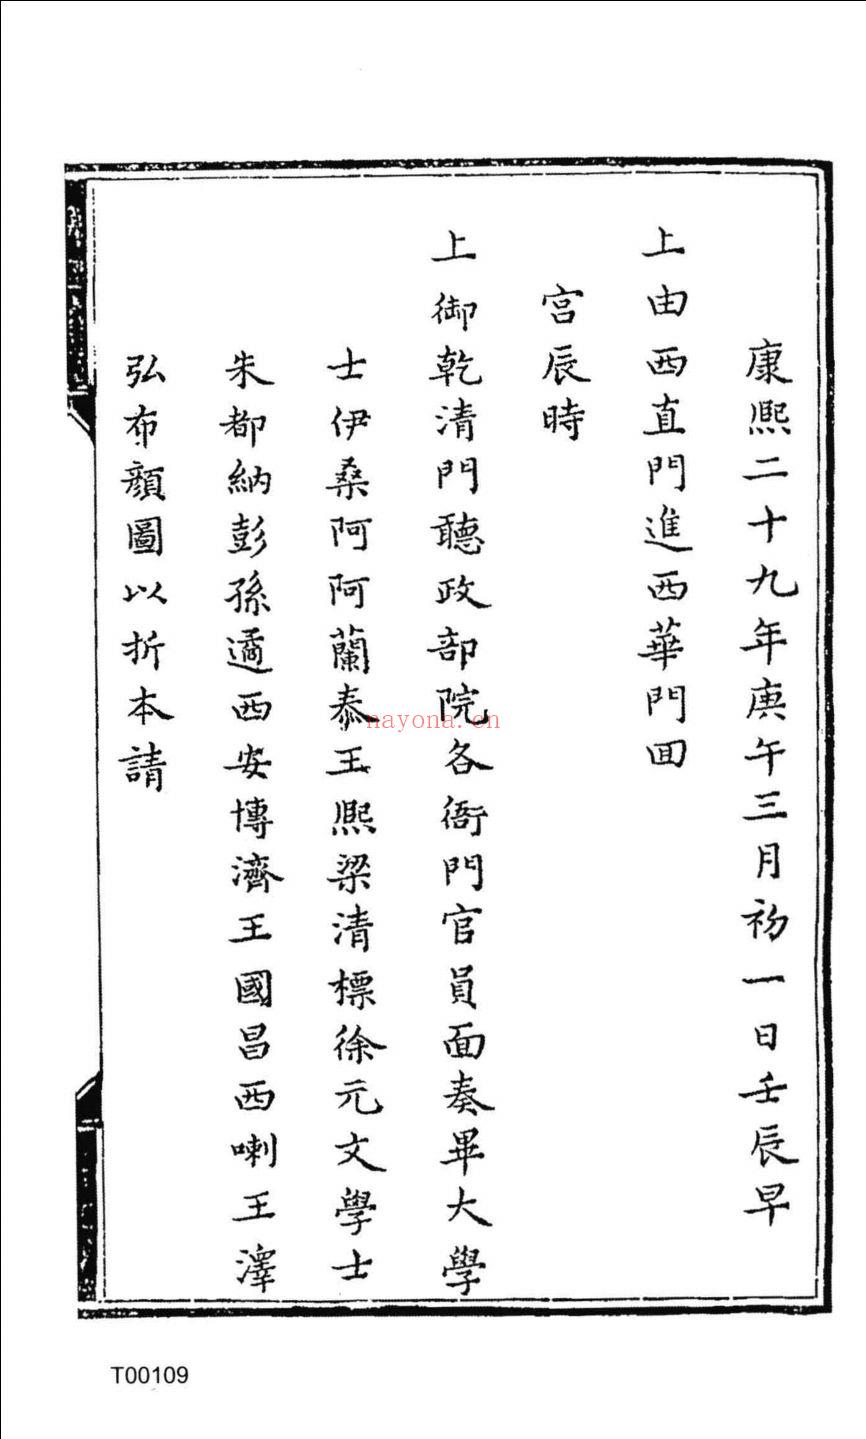 康熙二十九年庚午三月初一日壬辰早
上由西直門進西華門囬
宮辰時
上御乾清門聽政部院各衙門官員面奏畢大學
士伊桑阿阿蘭泰王熙梁清標徐元文學士
朱都納彭孫遹西安博濟王國昌西喇王澤
弘布顔圖以折本請
nayona.cn
T00109